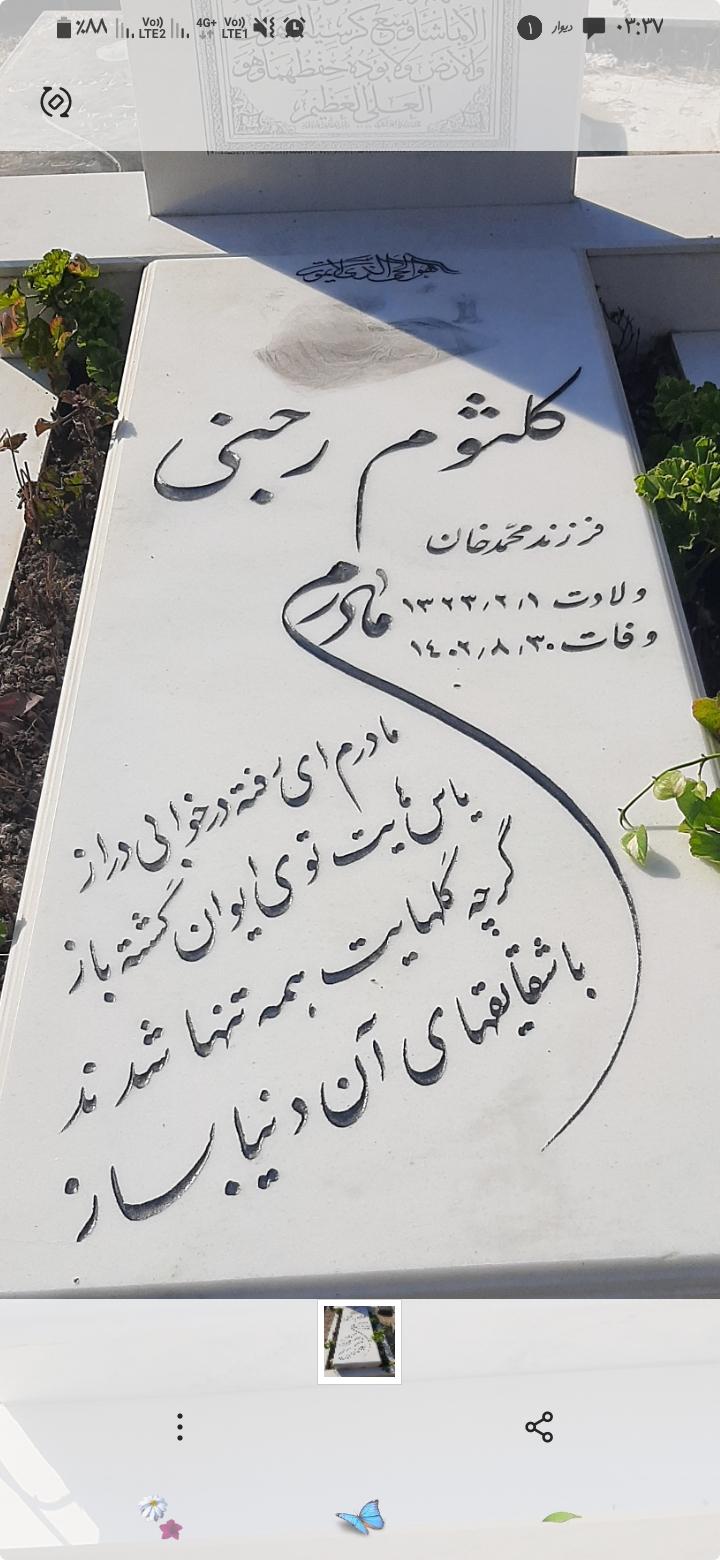 ۰۳:۳۷ دیوار ۱
Vo)) LTE1 4G+ Vo)) LTE2 ٪۸۸
الا بماشاء وسع کرسیه
والارض ولا یؤده حفظهما وهو
العلی العظیم
هو الحی الذی لا یموت
کلثوم رجبی
فرزند محمدخان
ولادت ۱۳۲۳٫۲٫۱
وفات ۱۴۰۲٫۸٫۳۰
مادرم
مادرم ای رفته در خوابی دراز
یاس هایت توی ایوان گشته باز
گرچه گلهایت همه تنها شدند
با شقایقهای آن دنیا بساز